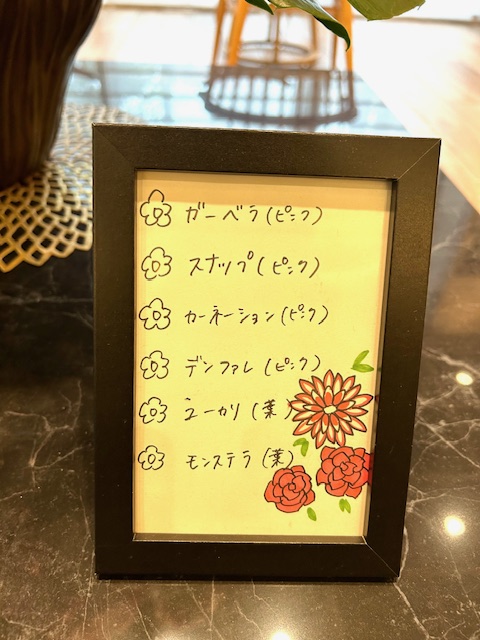 ガーベラ(ピンク)
スナップ(ピンク)
カーネーション(ピンク)
デンファレ(ピンク)
ユーカリ(葉)
モンステラ(葉)